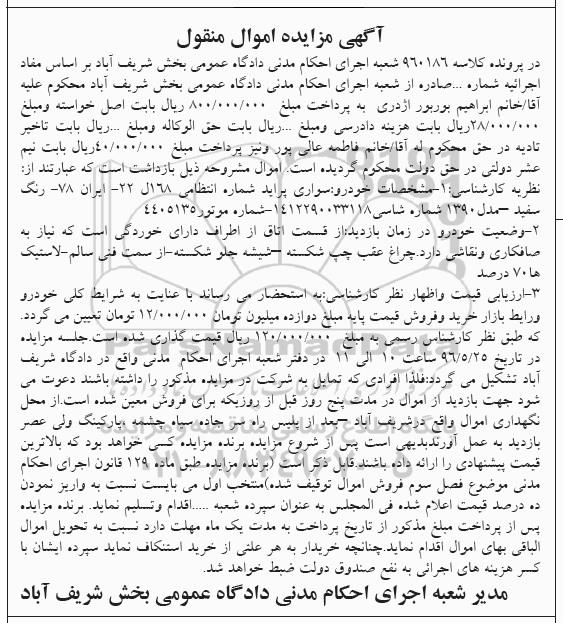 آگهی مزایده اموال منقول
در پرونده کلاسه ۹۶۰۱۸۶ شعبه اجرای احکام مدنی دادگاه عمومی بخش شریف آباد بر اساس مفاد
اجرائیه شماره ...صادره از شعبه اجرای احکام مدنی دادگاه عمومی بخش شریف آباد محکوم علیه
آقا/خانم ابراهیم بوربور اژدری به پرداخت مبلغ ۸۰۰/۰۰۰/۰۰۰ ریال بابت اصل خواسته ومبلغ
۲۸/۰۰۰/۰۰۰ریال بابت هزینه دادرسی ومبلغ ...ریال بابت حق الوکاله ومبلغ ...ریال بابت تاخیر
تادیه در حق محکوم له آقا/خانم فاطمه عالی پور ونیز پرداخت مبلغ ۴۰/۰۰۰/۰۰۰ریال بابت نیم
عشر دولتی در حق دولت محکوم گردیده است. اموال مشروحه ذیل بازداشت است که عبارتند از:
نظریه کارشناسی:۱-مشخصات خودرو:سواری پراید شماره انتظامی ۱۶۸ل ۲۲- ایران ۷۸- رنگ
سفید –مدل۱۳۹۰ شماره شاسی۱۴۱۲۲۹۰۰۳۳۱۱۸-شماره موتور۴۴۰۵۱۳۵
۲-وضعیت خودرو در زمان بازدید:از قسمت اتاق از اطراف دارای خوردگی است که نیاز به
صافکاری ونقاشی دارد.چراغ عقب چپ شکسته –شیشه جلو شکسته-از سمت فنی سالم-لاستیک
ها۷۰ درصد
۳-ارزیابی قیمت واظهار نظر کارشناسی:به استحضار می رساند با عنایت به شرایط کلی خودرو
ورایط بازار خرید وفروش قیمت پایه مبلغ دوازده میلیون تومان ۱۲/۰۰۰/۰۰۰ تومان تعیین می گردد.
که طبق نظر کارشناس رسمی به مبلغ ۱۲۰/۰۰۰/۰۰۰ ریال قیمت گذاری شده است.جلسه مزایده
در تاریخ ۹۶/۵/۲۵ ساعت ۱۰ الی ۱۱ در دفتر شعبه اجرای احکام مدنی واقع در دادگاه شریف
آباد تشکیل می گردد:فلذا افرادی که تمایل به شرکت در مزایده مذکور را داشته باشند دعوت می
شود جهت بازدید از اموال در مدت پنج روز قبل از روزیکه برای فروش معین شده است.از محل
نگهداری اموال واقع درشریف آباد –بعد از پلیس راه سر جاده سیاه چشمه ،پارکینگ ولی عصر
بازدید به عمل آورندبدیهی است پس از شروع مزایده برنده مزایده کسی خواهد بود که بالاترین
قیمت پیشنهادی را ارائه داده باشند.قابل ذکر است (برنده مزایده طبق ماده ۱۲۹ قانون اجرای احکام
مدنی موضوع فصل سوم فروش اموال توقیف شده)منتخب اول می بایست نسبت به واریز نمودن
ده درصد قیمت اعلام شده فی المجلس به عنوان سپرده شعبه .....اقدام وتسلیم نماید. برنده مزایده
پس از پرداخت مبلغ مذکور از تاریخ پرداخت به مدت یک ماه مهلت دارد نسبت به تحویل اموال
الباقی بهای اموال اقدام نماید.چنانچه خریدار به هر علتی از خرید استنکاف نماید سپرده ایشان با
کسر هزینه های اجرائی به نفع صندوق دولت ضبط خواهد شد.
مدیر شعبه اجرای احکام مدنی دادگاه عمومی بخش شریف آباد